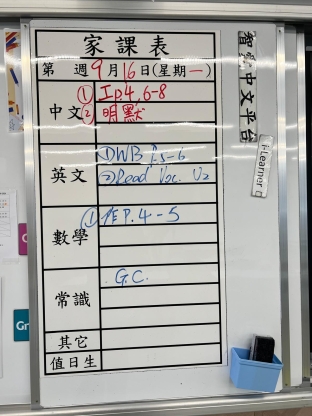 家課表
第 週9月16日(星期一)
中文
①工P.4,6-8
②明默
英文
①WB P.5-6
②Read Voc. U2
數學
①作P.4-5
常識
G.C.
其它
值日生
智愛中文平台
i-Learner